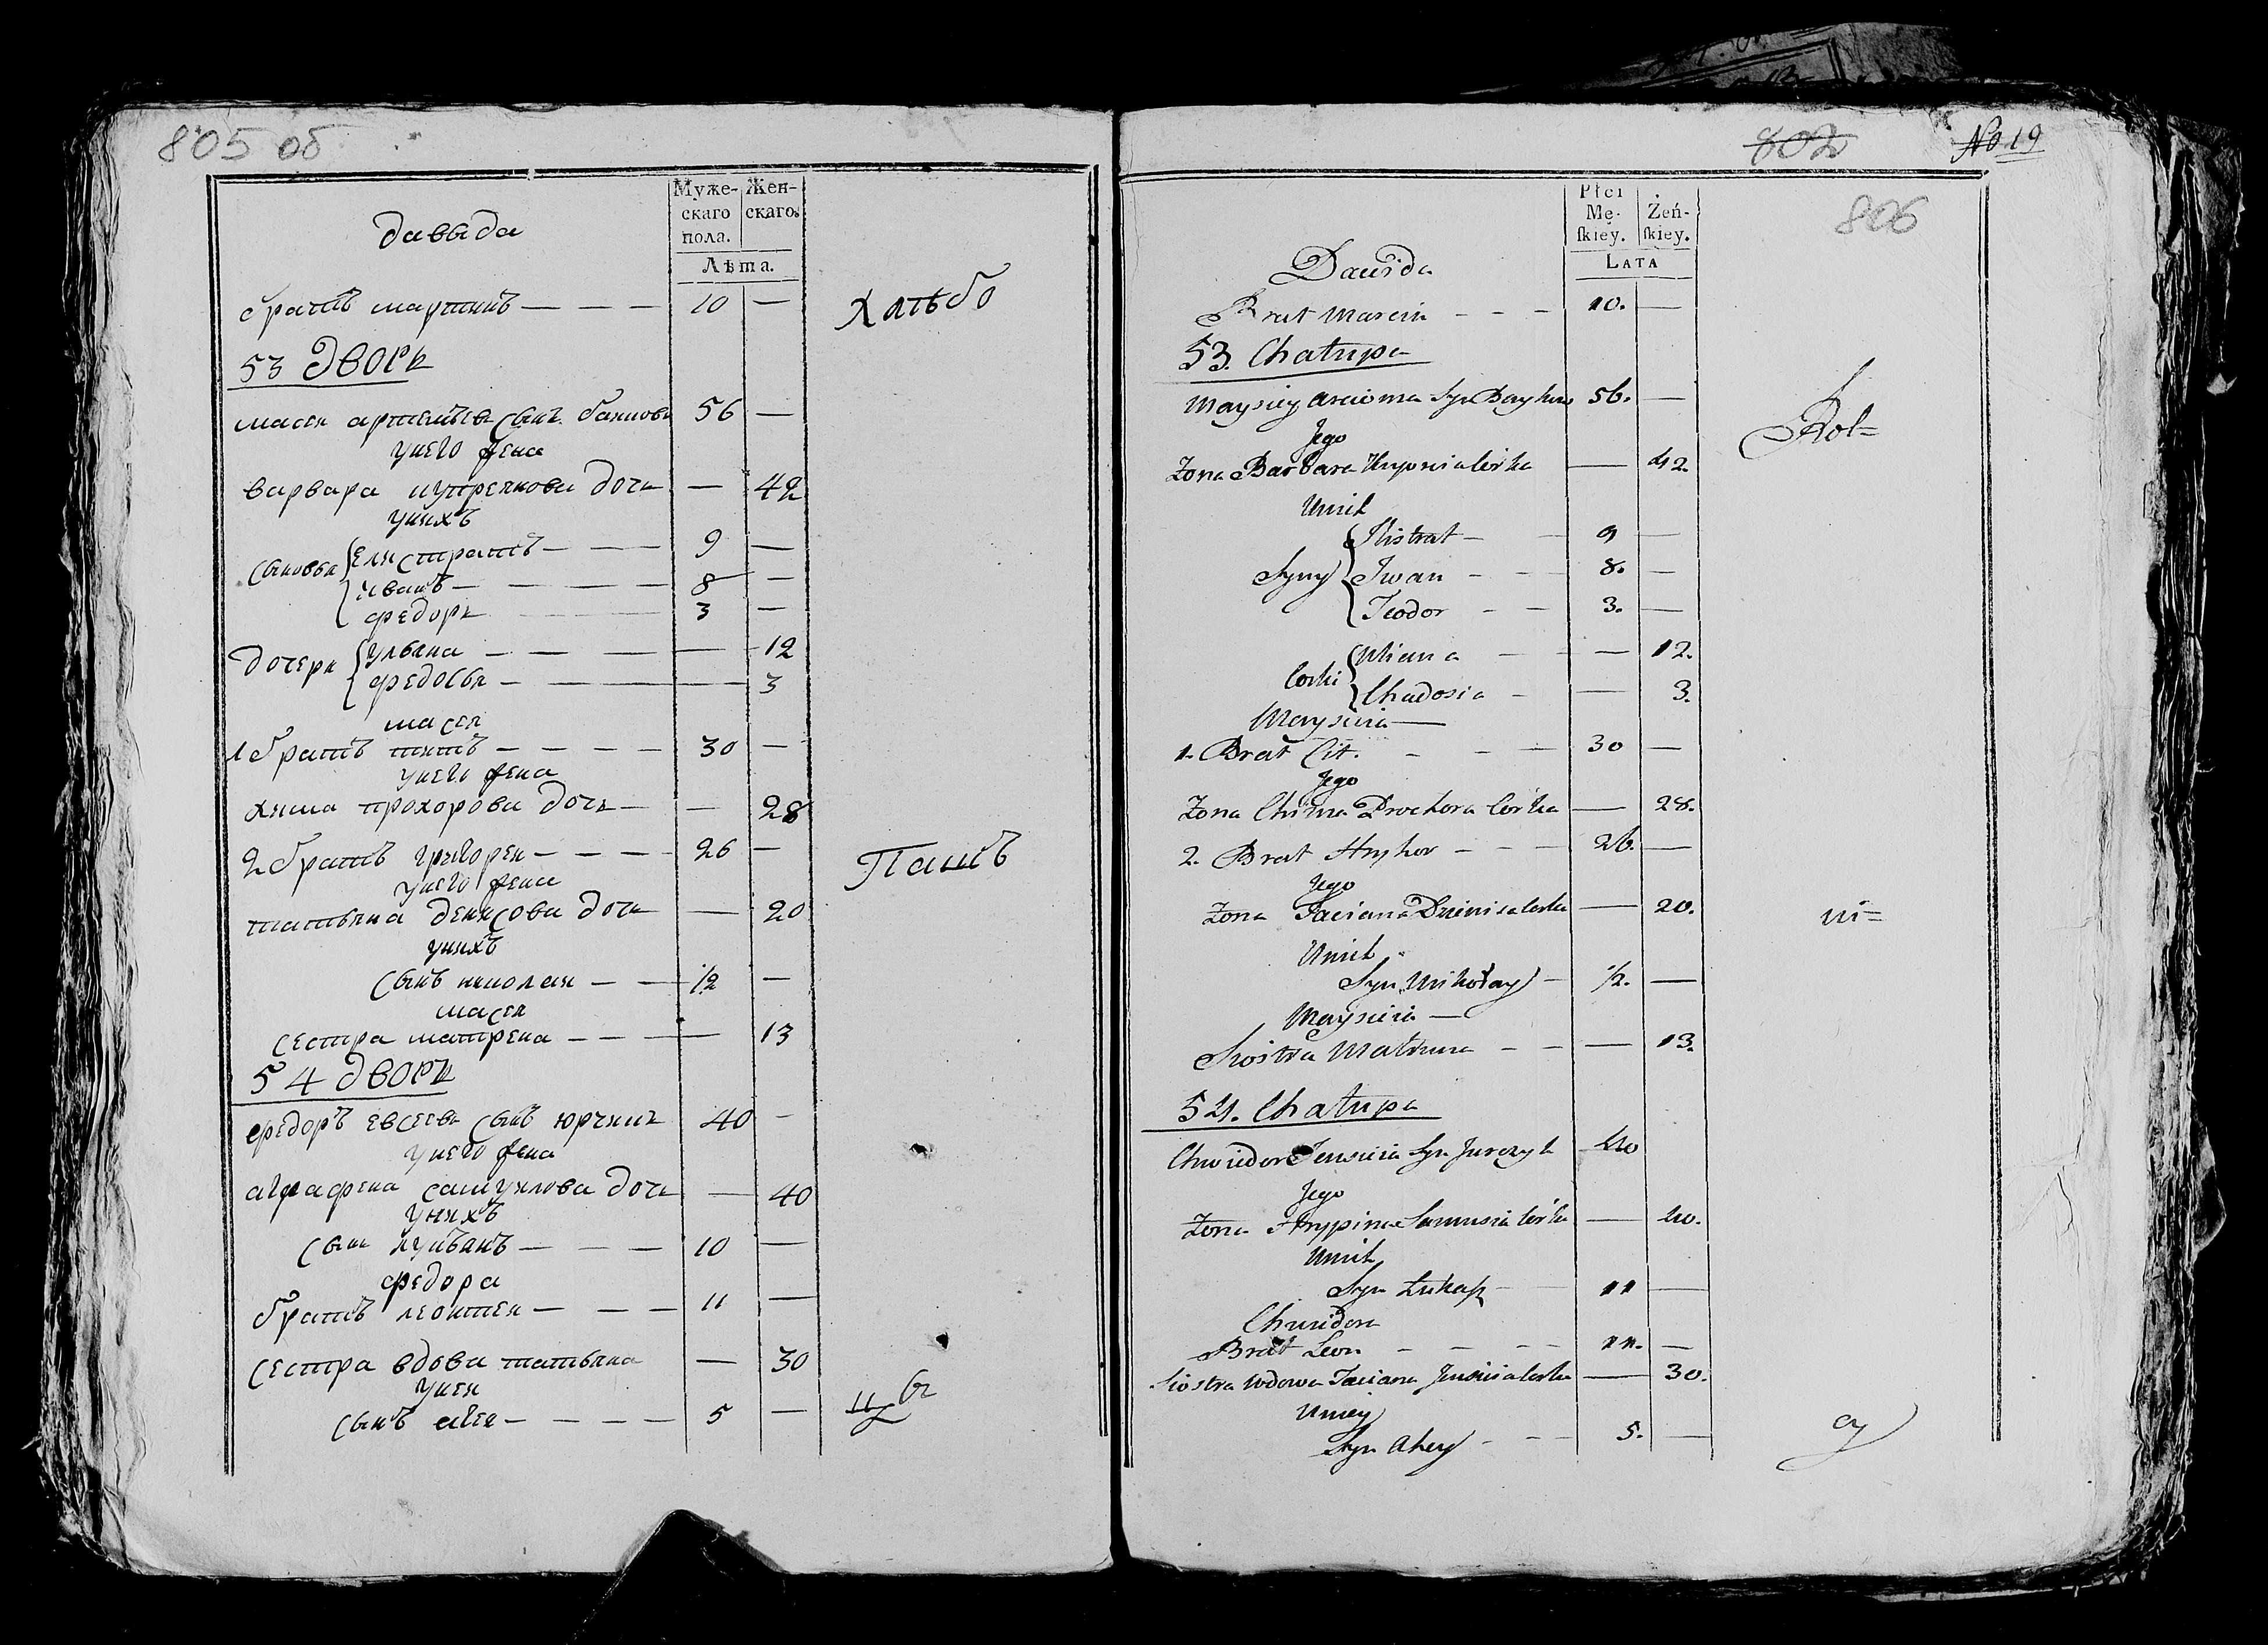 805 об
Муже-
скаго
пола.
Жен-
скаго.
Лѣта.
давыда
братъ мартинъ — — — 10 —
Хлѣбо
53 дворъ
масеи артемьевъ сынъ баиковъ 56 —
унего жена
варвара купреянова дочь — 42
унихъ
сыновья елистратъ — — — 9 —
иванъ — — — 8 —
федоръ 3 —
дочери ульяна — — — — 12
федосья — — — — 3
масея
1 братъ титъ — — — — 30 —
унего жена
химма прохорова дочь — — 28
2 братъ григореи — — — 26 —
Пашъ
унего жена
татьяна денисова дочь — 20
унихъ
сынъ николаи — — 1/2 —
масея
сестра матрена — — — — 13
54 дворъ
федоръ евсеевъ сынъ юрчикъ 40 —
унего жена
аграфена самуилова дочь — 40
унихъ
сынъ лукьянъ — — — 10 —
федора
братъ леонтеи — — — 11 —
сестра вдова татьяна — 30
унеи
сынъ агеи — — — — 5 —
цъ
802
No 19
806
Płci
Mę-
ſkiey.
Żeń-
ſkiey.
LATA
Dawida
Brat Marcin - - - 10. —
53. Chałupa
Maysiey Arcioma Syn Baykow 56. —
Rol=
Jego
Zona Barbara Kuprcia Corka — 42.
Unich
Syny Ilistrat — — 9 —
Iwan - - - 8. —
Teodor - - 3. —
Corki Uliana — — — 12.
Chadosia - — 3.
Maysieia —
1. Brat Cit. - - — 30 —
Jego
Zona Chima Prochora Corka — 28.
2. Brat Hryhor - - - 26. —
Jego
Zona Taciana Dzienisa Corka — 20.
ni=
Unich
Syn Mikołay - 1/2. —
Maysieia —
Siostra Matruna - - — 13.
54. Chałupa
Chwiedor Jewsieia Syn Jurczyk 40
Jego
Zona Hrypina Samusia Corka — 40.
Unich
Syn Łukasz — 11 —
Chwiedora
Brat Leon - - - - 11. —
Siostra Wdowa Taciana Jewsieia Corka — 30.
Uniey
Syn Ahey - - - 5. —
cy